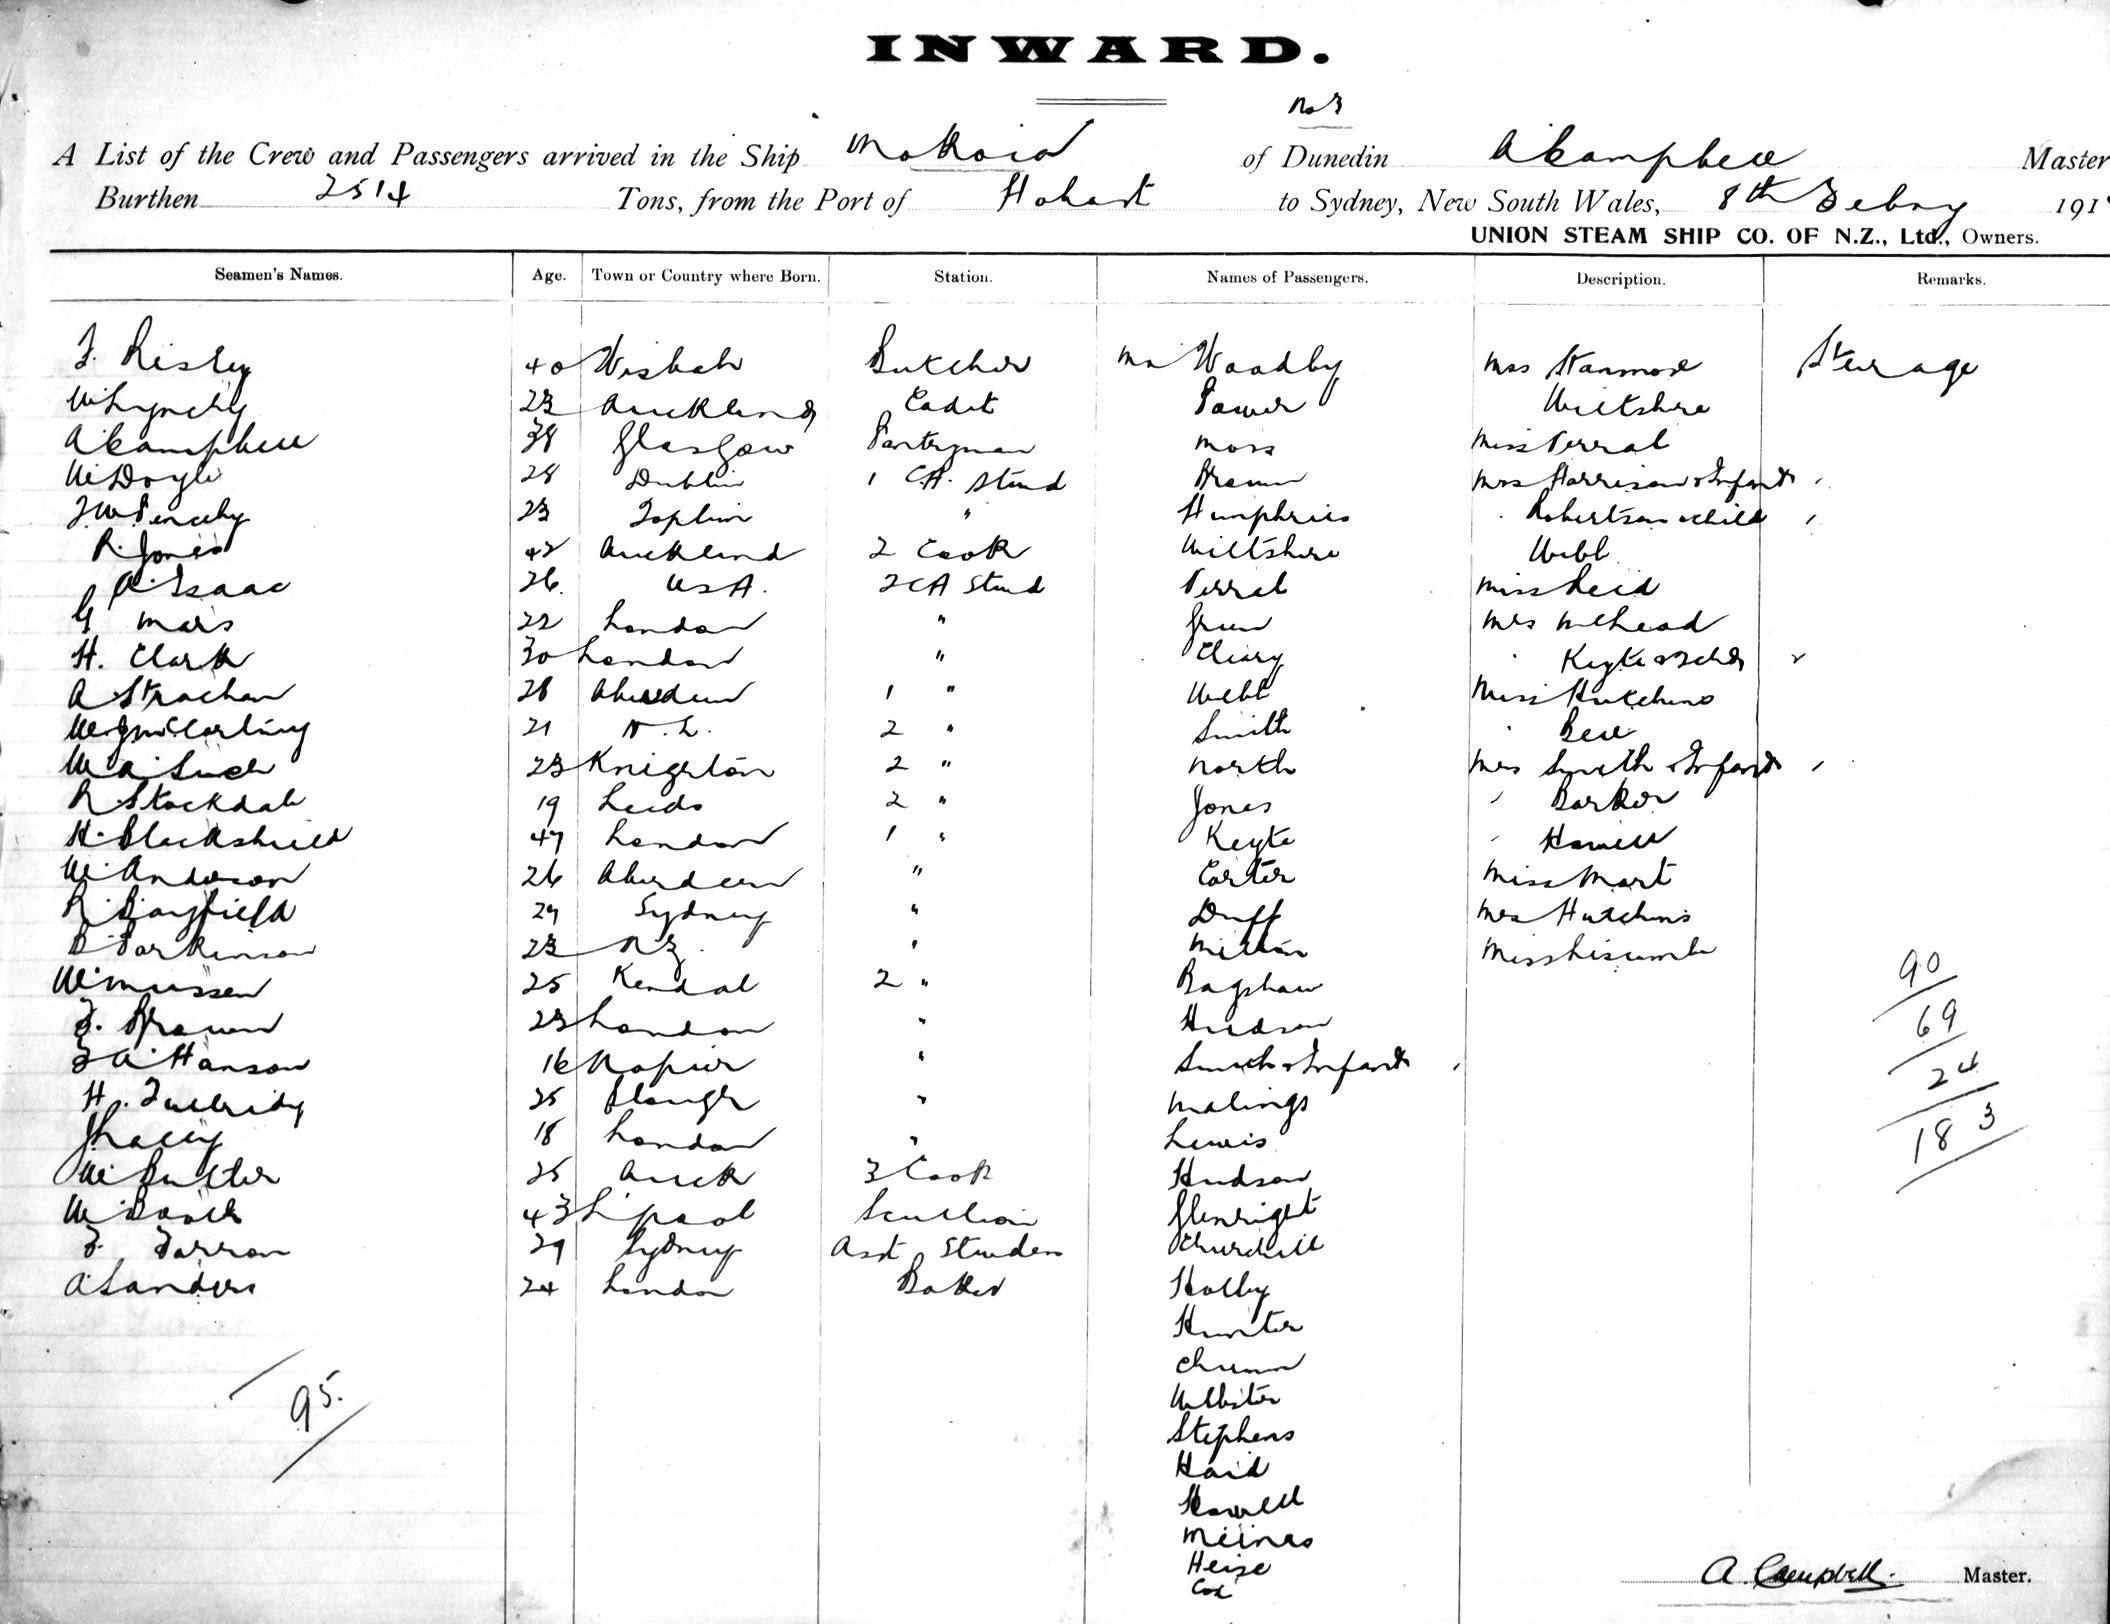 INWARD.
No 3
A List of the Crew and Passengers arrived in the Ship Mokoia of Dunedin A Campbell Master
Burthen 2514 Tons, from the Port of Hobart to Sydney, New South Wales, 8th Febry 191
UNION STEAM SHIP CO. OF N.Z., Ltd., Owners.
Seamen's Names. Age. Town or Country where Born. Station. Names of Passengers. Description. Remarks.
F. Risley 40 Wisbech Butcher Mr Woodby Mrs Stanmore Steerage
W Lynchy 23 Auckland Cadet Power Wiltshire
A Campbell 38 Glasgow Pantryman Moss Miss Verral
W Doyle 28 Dublin 1 C.A. Stwd Brown Mrs Harrison & Infant
J.W. 23 " Humphries Robertson & child
R. Jones 42 Auckland 2 Cook Wiltshire Webb
A. Isaac 26. USA. 2 CA Stwd Verral Miss Reid
G Mars 22 London " Green Mrs McLeod
H. Clark 30 London " Cleary Keyte & 2 chdr
A Strachan 28 Aberdeen 1 " Webb Miss Hutchins
W. J. McCartney 21 N.Z. 2 " Smith Bell
W A 23 Knighton 2 " North Mrs Smith & Infant
R Stockdale 19 Leeds 2 " Jones " Barker
H. Blackshield 47 London 1 " Keyte " Howell
W. Anderson 26 Aberdeen " Carter Miss Mart
R. Bayfield 29 Sydney " Duff Mrs Hutchins
B. Parkinson 23 NZ. " Milton Miss Liscombe
W. Mussen 25 Kendal 2 " Bagshaw
F. Brown 23 London " Hudson
F A. Hanson 16 Napier " Smith & Infant
H. 25 Slough " Malings
J Lacey 18 London " Lewis
W. Butler 25 Auck 3 Cook Hudson
W. Booth 43 L'pool Scullion Glenright
F. Farron 29 Sydney Asst Stwdess Churchill
A Sanders 24 London Baker Holby
Hunter
Webster
Stephens
Haid
Howell
Meines
Heise
Cox
90
69
24
183
95.
A. Campbell. Master.